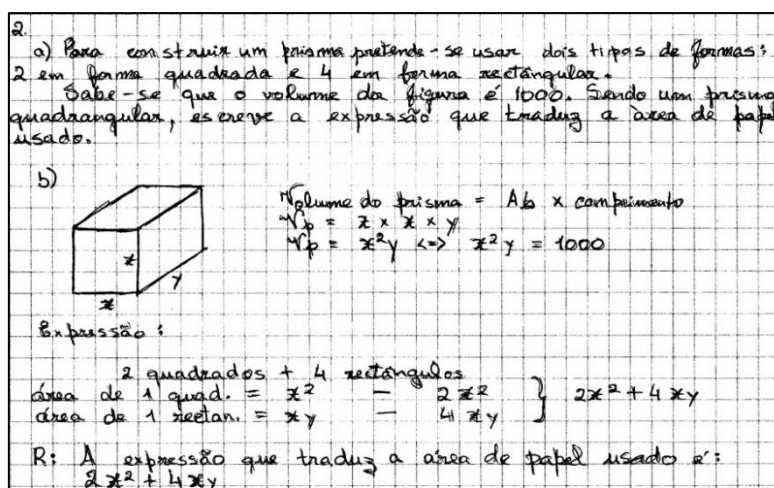 2.
a) Para construir um prisma pretende-se usar dois tipos de formas:
2 em forma quadrada e 4 em forma rectângular.
Sabe-se que o volume da figura é 1000. Sendo um prisma
quadrangular, escreve a expressão que traduz a àrea de papel
usado.
b)
Volume do prisma = Ab x comprimento
Vp = x × x × y
Vp = x²y <=> x²y = 1000
x
y
x
Expressão:
2 quadrados + 4 rectângulos
área de 1 quad. = x² — 2x² } 2x² + 4xy
área de 1 rectan. = xy — 4xy
R: A expressão que traduz a área de papel usado é:
2x² + 4xy